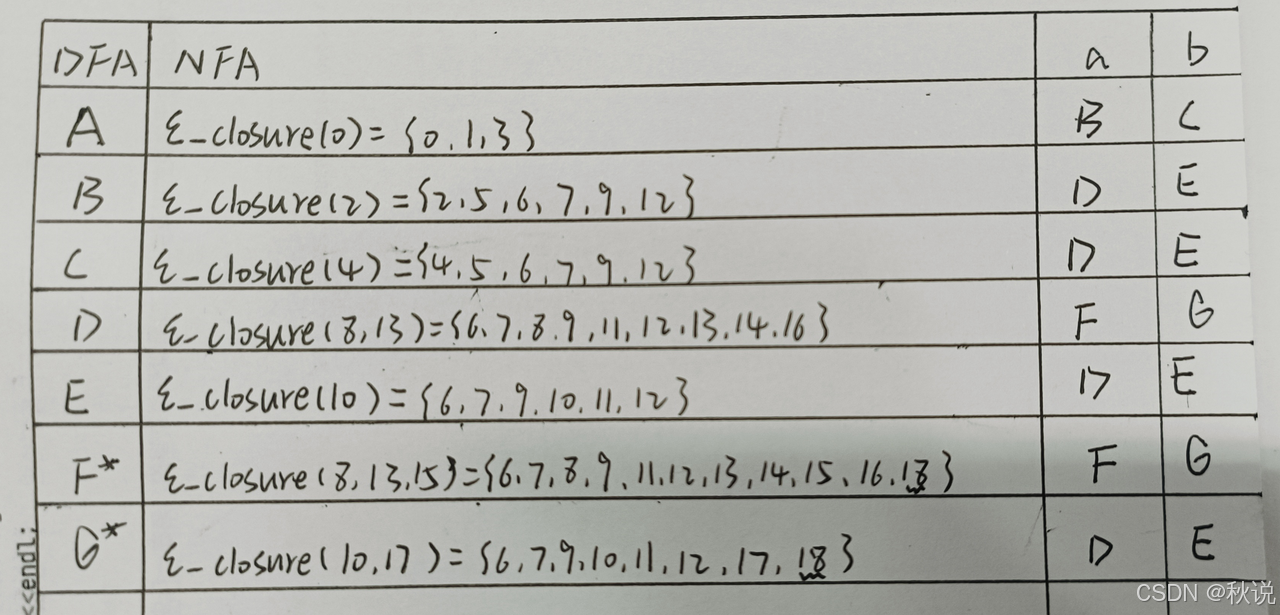 DFA NFA a b
A ε_closure(0)={0,1,3} B C
B ε_closure(2)={2,5,6,7,9,12} D E
C ε_closure(4)={4,5,6,7,9,12} D E
D ε_closure(8,13)={6,7,8,9,11,12,13,14,16} F G
E ε_closure(10)={6,7,9,10,11,12} D E
F* ε_closure(8,13,15)={6,7,8,9,11,12,13,14,15,16,18} F G
G* ε_closure(10,17)={6,7,9,10,11,12,17,18} D E
<<endl;
CSDN @秋说